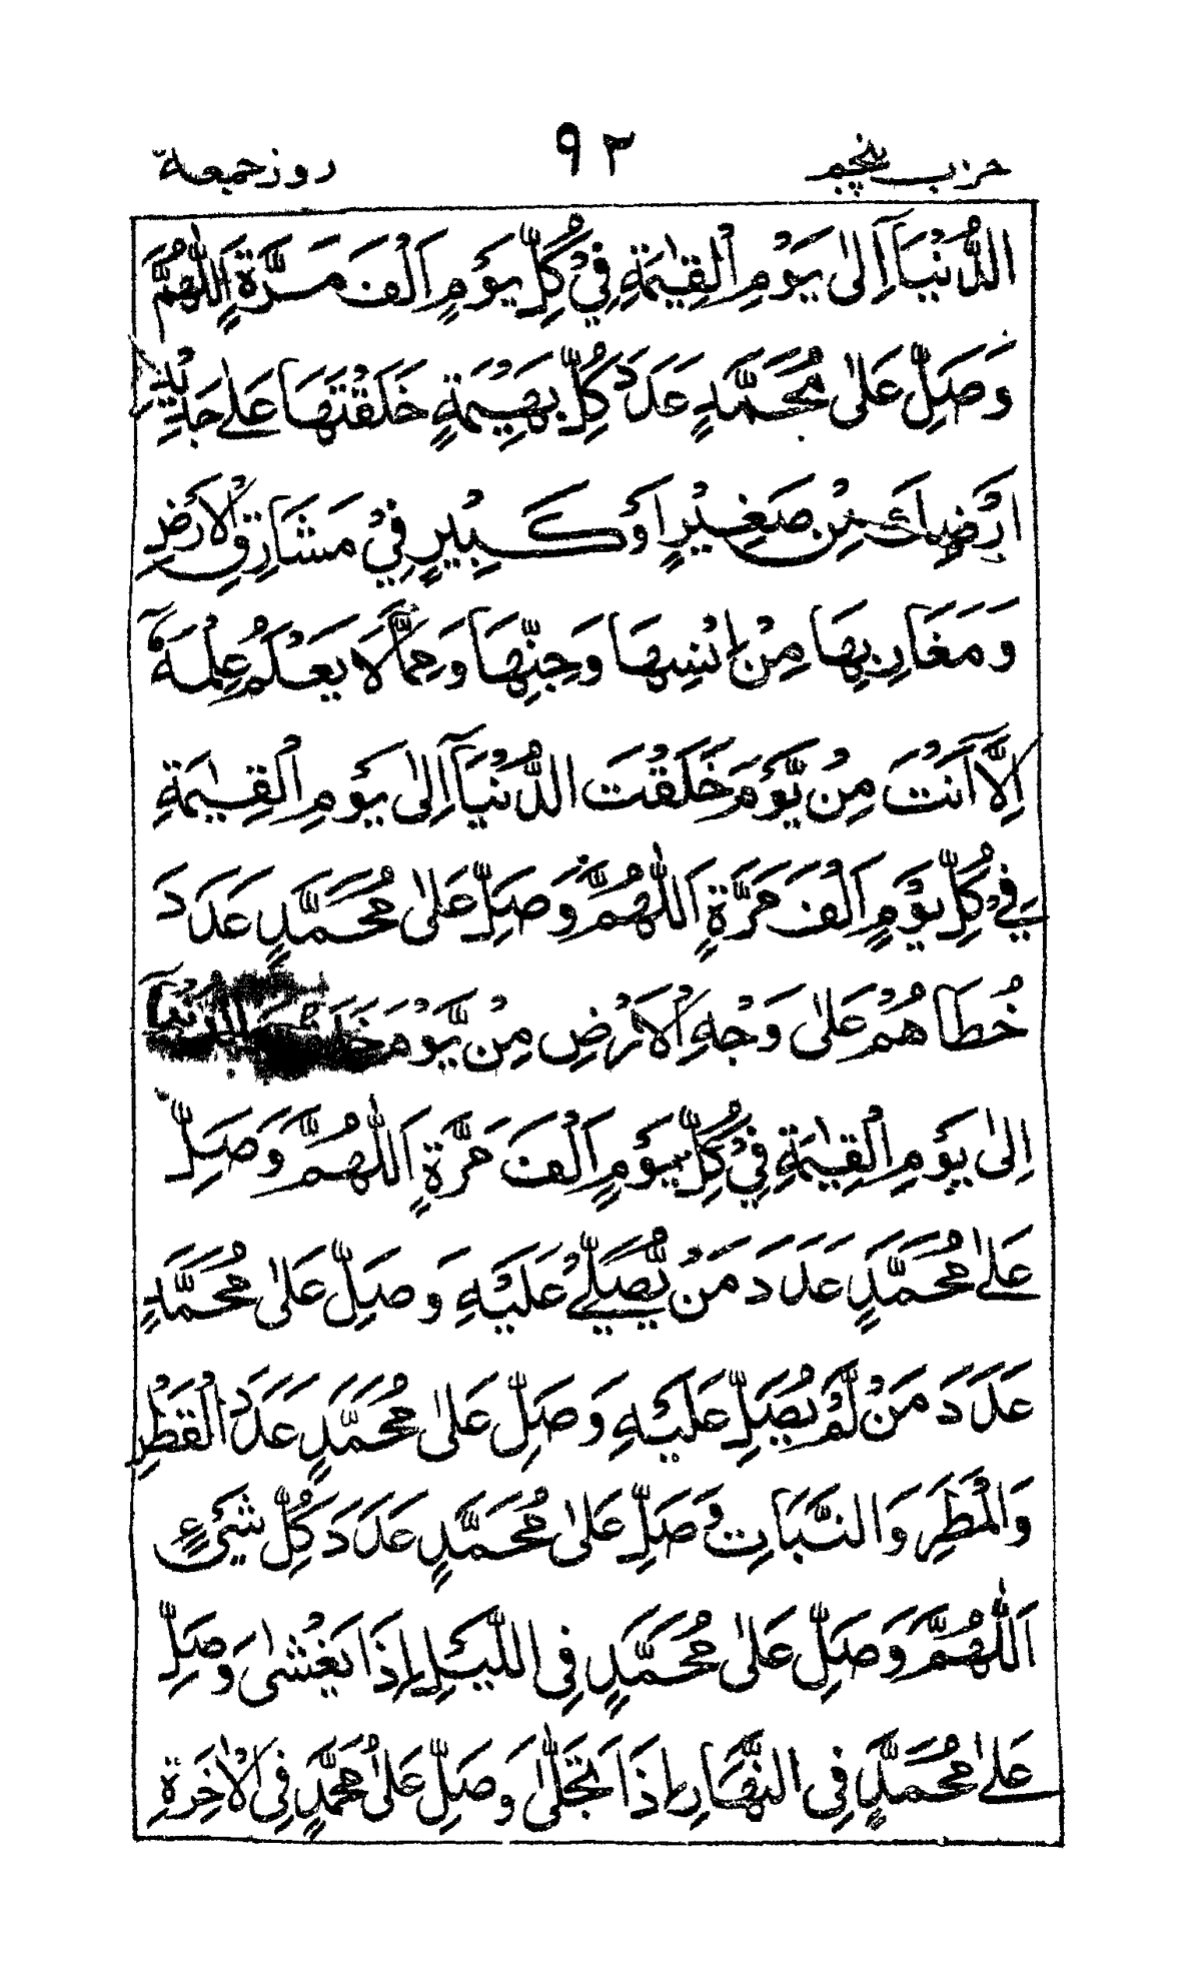 حزب پنجم ٩٣ روز جمعة
الدُّنْيَآ اِلٰى يَوْمِ الْقِيٰمَةِ فِيْ كُلِّ يَوْمٍ اَلْفَ مَرَّةٍ اَللّٰهُمَّ
وَصَلِّ عَلٰى مُحَمَّدٍ عَدَدَ كُلِّ بَهِيْمَةٍ خَلَقْتَهَا عَلٰے جَدِيْدِ
اَرْضِكَ مِنْ صَغِيْرٍ اَوْ كَبِيْرٍ فِيْ مَشَارِقِ الْاَرْضِ
وَمَغَارِبِهَا مِنْ اِنْسِهَا وَجِنِّهَا وَمِمَّا لَا يَعْلَمُ عِلْمَهٗٓ
اِلَّآ اَنْتَ مِنْ يَّوْمَ خَلَقْتَ الدُّنْيَآ اِلٰى يَوْمِ الْقِيٰمَةِ
فِيْ كُلِّ يَوْمٍ اَلْفَ مَرَّةٍ اَللّٰهُمَّ وَصَلِّ عَلٰى مُحَمَّدٍ عَدَدَ
خُطَاهُمْ عَلٰى وَجْهِ الْاَرْضِ مِنْ يَّوْمَ خَلَقْتَ الدُّنْيَآ
اِلٰى يَوْمِ الْقِيٰمَةِ فِيْ كُلِّ يَوْمٍ اَلْفَ مَرَّةٍ اَللّٰهُمَّ وَصَلِّ
عَلٰے مُحَمَّدٍ عَدَدَ مَنْ يُّصَلِّيْ عَلَيْهِ وَصَلِّ عَلٰى مُحَمَّدٍ
عَدَدَ مَنْ لَّمْ يُصَلِّ عَلَيْهِ وَصَلِّ عَلٰى مُحَمَّدٍ عَدَدَ الْقَطْرِ
وَالْمَطَرِ وَالنَّبَاتِ وَصَلِّ عَلٰى مُحَمَّدٍ عَدَدَ كُلِّ شَيْءٍ
اَللّٰهُمَّ وَصَلِّ عَلٰى مُحَمَّدٍ فِى اللَّيْلِ اِذَا يَغْشٰى وَصَلِّ
عَلٰے مُحَمَّدٍ فِى النَّهَارِ اِذَا تَجَلّٰى وَصَلِّ عَلٰى مُحَمَّدٍ فِى الْاٰخِرَةِ